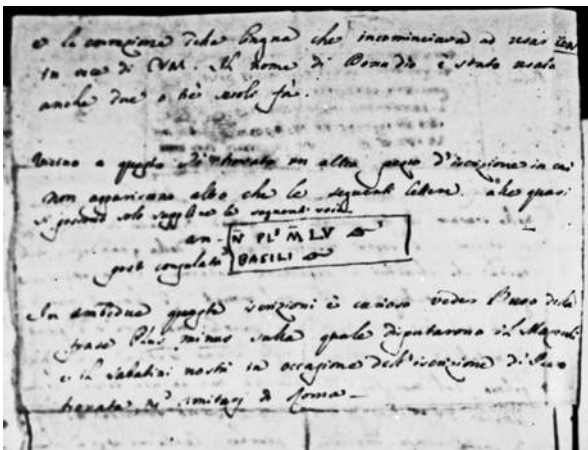 e la corruzione della lingua che incominciava ad usar CUM
in vece di CVM. Il nome di è stato usato
anche due o tre secoli fà.
Vicino a questo si ritrovato un altro pezzo d'iscrizione in cui
non appariscono altro che le seguenti lettere. alle quasi
si possono solo supplire le seguenti voci
an- N̄ PL' M̄ LV
post consulatu BASILI
In ambidue queste iscrizioni è curioso veder l'uso della
frase Plus minus sulla quale disputarono il
e il Sabatini nostri in occasione dell'iscrizione di
trovata ne' cimiterj di Roma